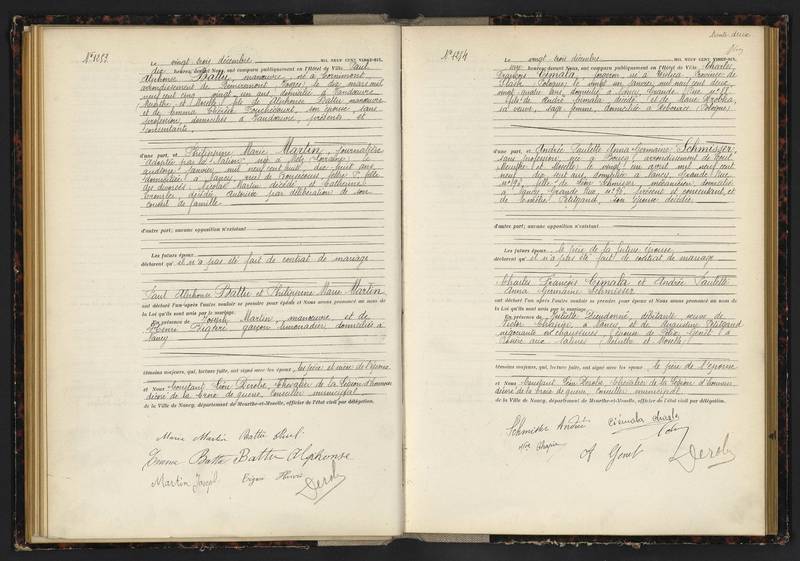 N° 1053.
Le vingt trois décembre MIL NEUF CENT VINGT-SIX,
dix heures, devant Nous, ont comparu publiquement en l'Hôtel de Ville Paul
Alphonse Battu, manœuvre, né à Cornimont,
arrondissement de Remiremont (Vosges) le dix mars mil
neuf cent cinq, vingt un ans, domicilié à Vandœuvre
(Meurthe et Moselle) fils de Alphonse Battu manœuvre
et de Emma son épouse sans
profession, domiciliés à Vandœuvre, présents et
consentants,
d'une part, et Philippine Marie Martin, journalière
adoptée par la Nation, née à Metz (Lorraine) le
janvier mil neuf cent huit, dix huit ans
domiciliée à Nancy, rue de fille
des divorcés Nicolas Martin décédé et Catherine
décédée autorisée par délibération de son
conseil de famille.
d'autre part; aucune opposition n'existant
Les futurs époux
déclarent qu'il n'a pas été fait de contrat de mariage
Paul Alphonse Battu et Philippine Marie Martin
ont déclaré l'un après l'autre vouloir se prendre pour époux et Nous avons prononcé au nom de
la Loi qu'ils sont unis par le mariage.
En présence de Joseph Martin, manœuvre, et de
Henri garçon limonadier, domiciliés à
Nancy
témoins majeurs, qui, lecture faite, ont signé avec les époux, les père et mère de l'époux
et Nous Constant Léon Derole, Chevalier de la Légion d'honneur
décoré de la Croix de guerre, Conseiller municipal
de la Ville de Nancy, département de Meurthe-et-Moselle, officier de l'état civil par délégation.
Marie Martin Battu Paul
Emma Battu Battu Alphonse
Martin Joseph Henri
Derole
trente-deux
N° 1224
Le vingt trois décembre MIL NEUF CENT VINGT-SIX,
heures, devant Nous, ont comparu publiquement en l'Hôtel de Ville Charles
François Cimala, forgeron, né à Province de
(Pologne) le vingt un janvier mil neuf cent deux,
vingt quatre ans, domicilié à Nancy, Grande Rue n°
fils de André Cimala décédé et de Marie
sa veuve, sage femme, domiciliée à (Pologne)
d'une part, et Andrée Paulette Anna Germaine Schmisser
sans profession, née à arrondissement de Toul
Meurthe et Moselle, le vingt août mil neuf cent
neuf, dix sept ans, domiciliée à Nancy, Grande Rue
n° fille de Léon Schmisser mécanicien, domicilié
à Nancy Grande Rue, n° présent et consentant et
de Petitgand, son épouse décédée.
d'autre part; aucune opposition n'existant
Les futurs époux, le père de la future épouse
déclarent qu'il n'a pas été fait de contrat de mariage
Charles François Cimala et Andrée Paulette
Anna Germaine Schmisser
ont déclaré l'un après l'autre vouloir se prendre pour époux et Nous avons prononcé au nom de
la Loi qu'ils sont unis par le mariage.
En présence de Juliette Dieudonné, débitante, veuve de
Victor à Nancy, et de Augustine Petitgand
négociante en chaussures, épouse de Félix Genet à
aux (Meurthe et Moselle)
témoins majeurs, qui, lecture faite, ont signé avec les époux, le père de l'épouse
et Nous Constant Léon Derole, Chevalier de la Légion d'honneur
décoré de la Croix de guerre, Conseiller municipal
de la Ville de Nancy, département de Meurthe-et-Moselle, officier de l'état civil par délégation.
Schmisser Andrée
Genet
Derole